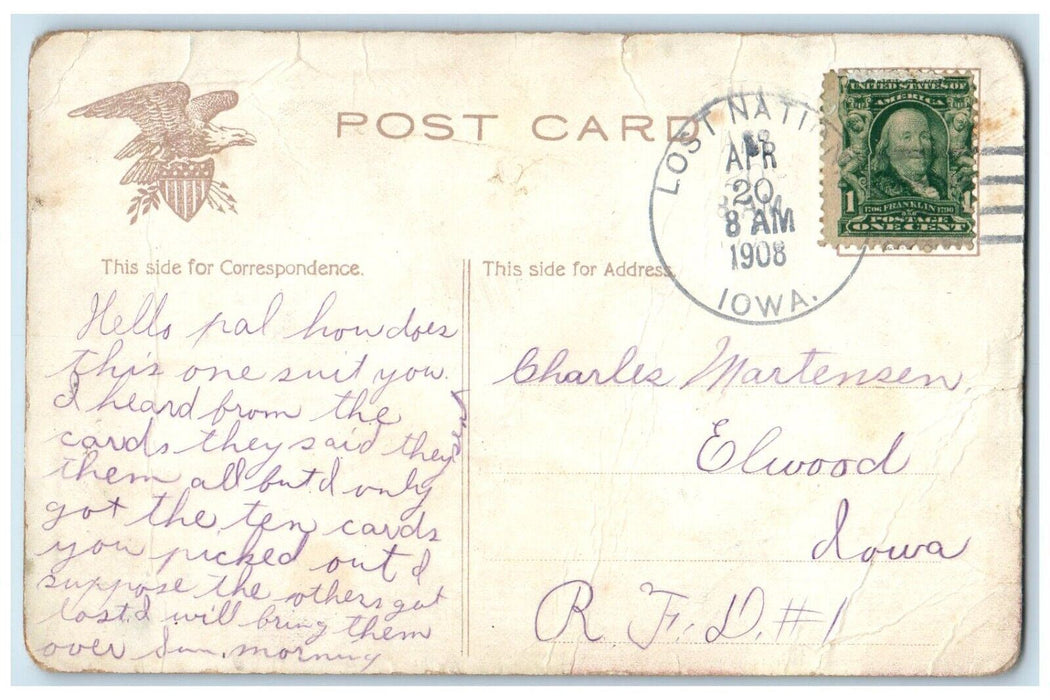 POST CARD
LOST NATION
APR
20
8 AM
1908
IOWA.
UNITED STATES OF
AMERICA
1 1706 FRANKLIN 1790 1
POSTAGE
ONE CENT
This side for Correspondence.
This side for Address.
Hello pal how does
this one suit you.
I heard from the
cards they said they sent
them all but I only
got the ten cards
you picked out I
suppose the others got
lost I will bring them
over Sun. morning
Charles Martensen,
Elwood
Iowa
R. F. D. #1